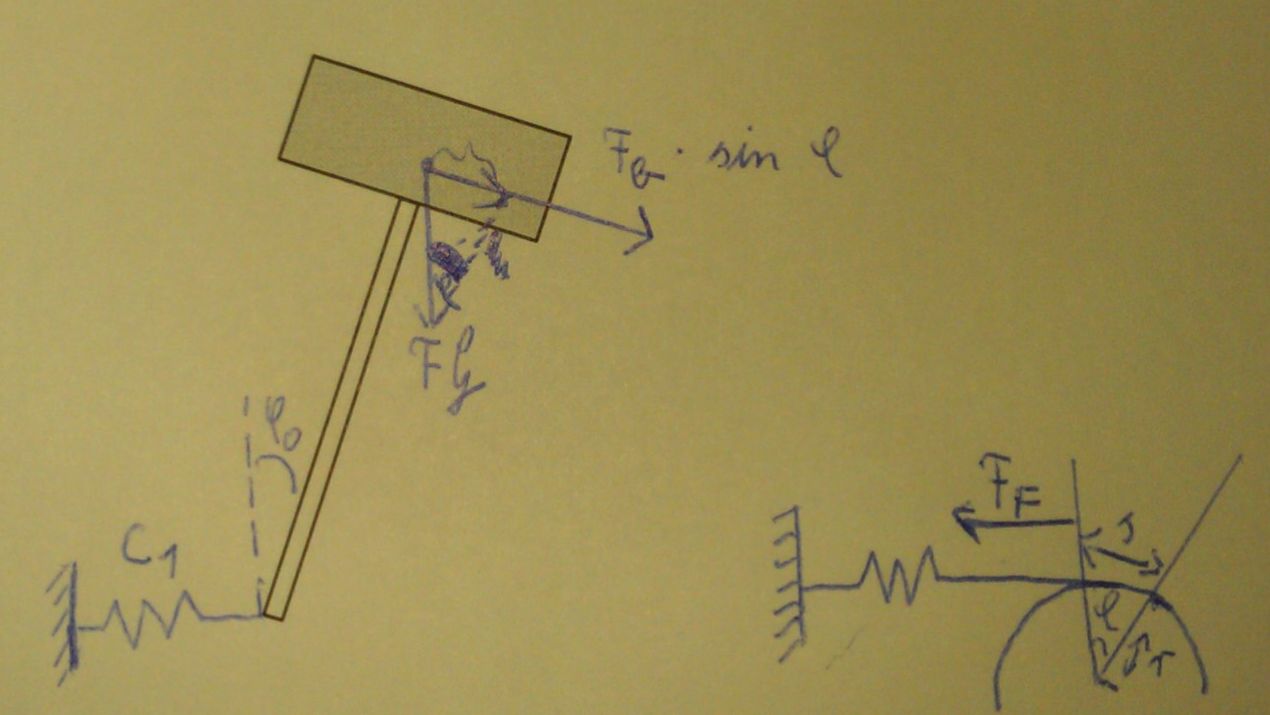 F_G · sin φ
F_G
φ₀
C₁
F_F
s
φ
r